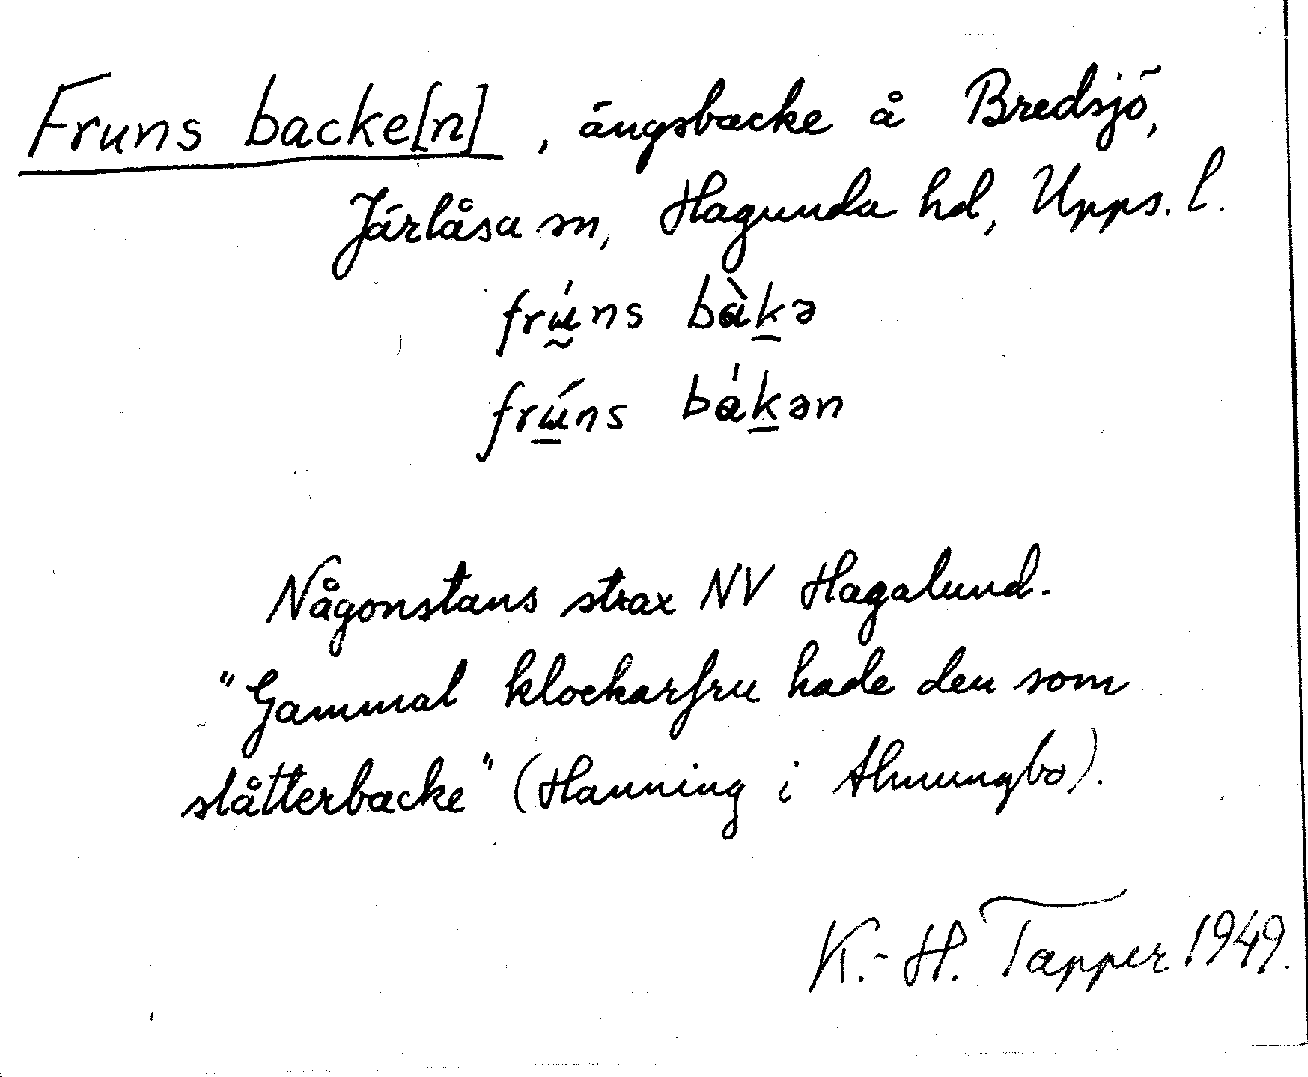 Fruns backe[n], ängsbacke å Bredsjö,
Järlåsa sn, Hagunda hd, Upps. l.
frɯ́ns bàkə
frɯ́ns bákən
Någonstans strax NV Hagalund.
"Gammal klockarfru hade den som
slåtterbacke" (Hanning i Almungbo).
K.-H. Tapper 1949.